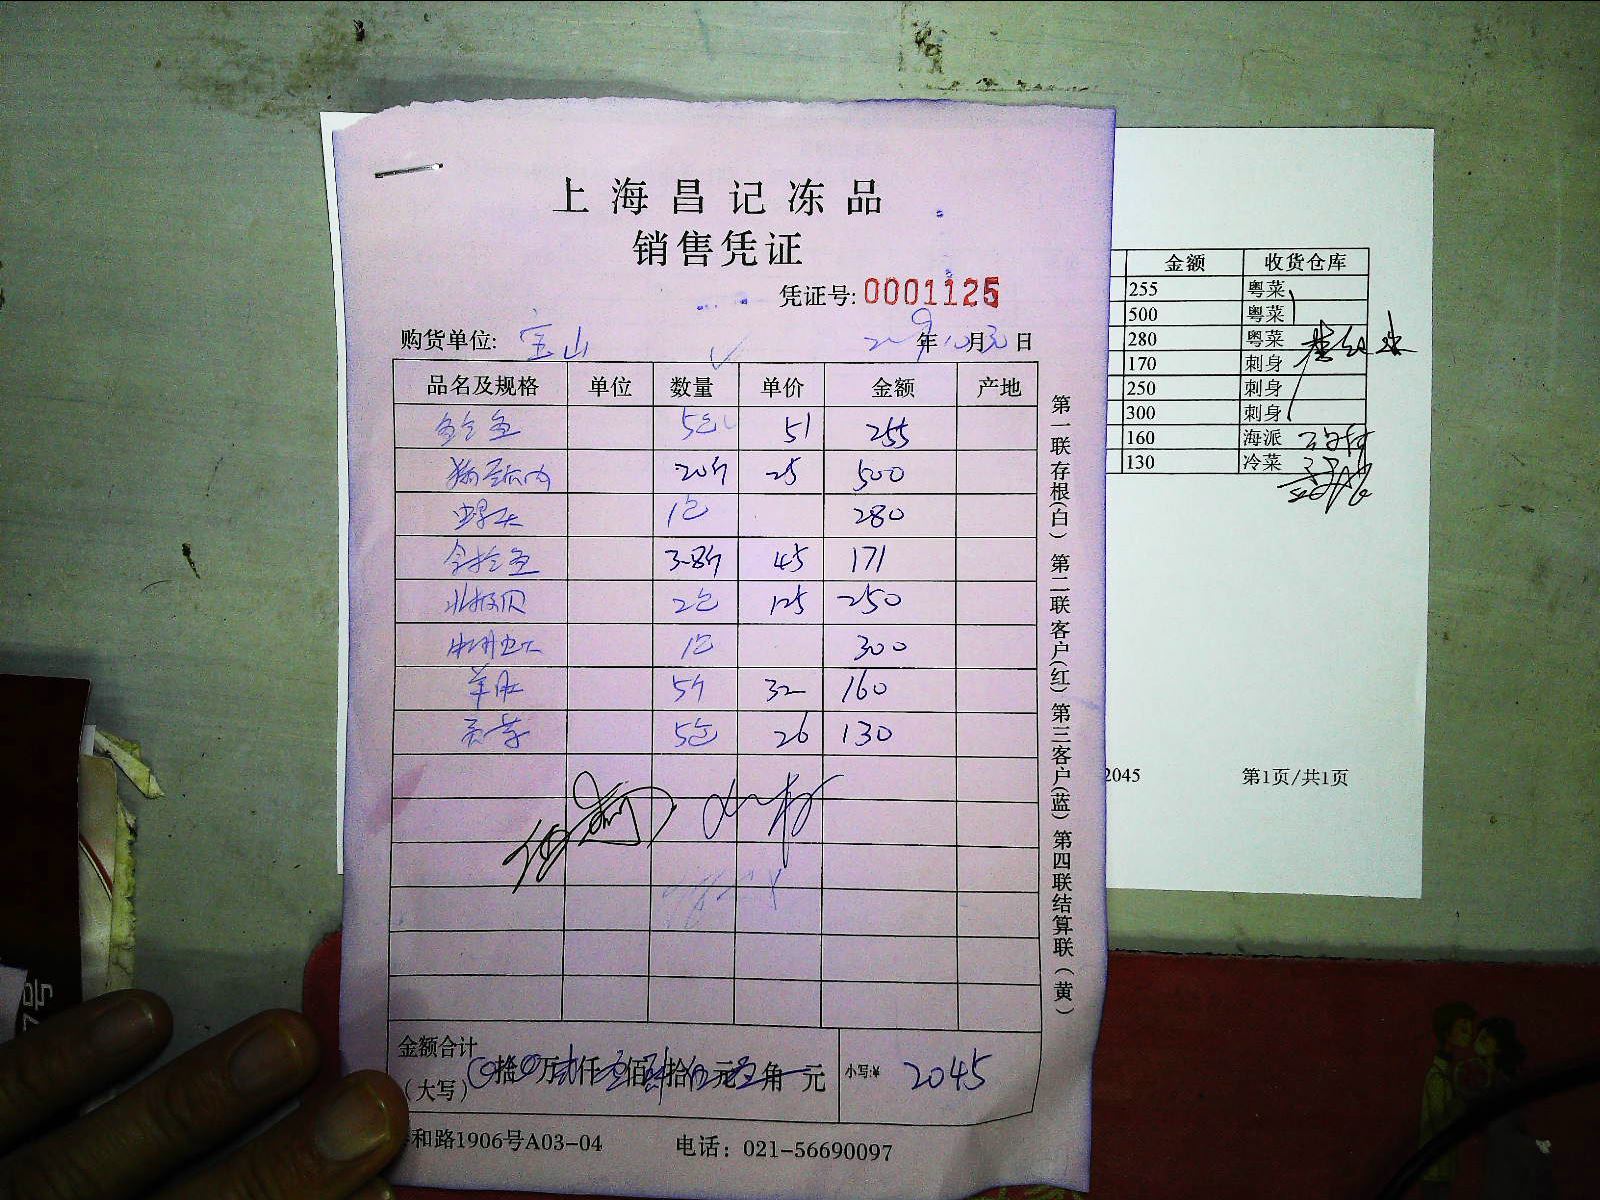 上海昌记冻品
销售凭证
凭证号: 0001125
购货单位: 宝山 年10月30日
品名及规格 单位 数量 单价 金额 产地
5包 51 255
20个 25 500
1包 280
3.8斤 45 171
北极贝 2包 125 250
1包 300
羊肚 5个 32 160
5包 26 130
金额合计
(大写) 拾 万 贰仟 佰 肆拾伍元 角 元 小写:¥ 2045
和路1906号A03-04 电话: 021-56690097
第一联存根(白) 第二联客户(红) 第三客户(蓝) 第四联结算联(黄)
金额 收货仓库
255 粤菜
500 粤菜
280 粤菜
170 刺身
250 刺身
300 刺身
160 海派
130 冷菜
2045 第1页/共1页